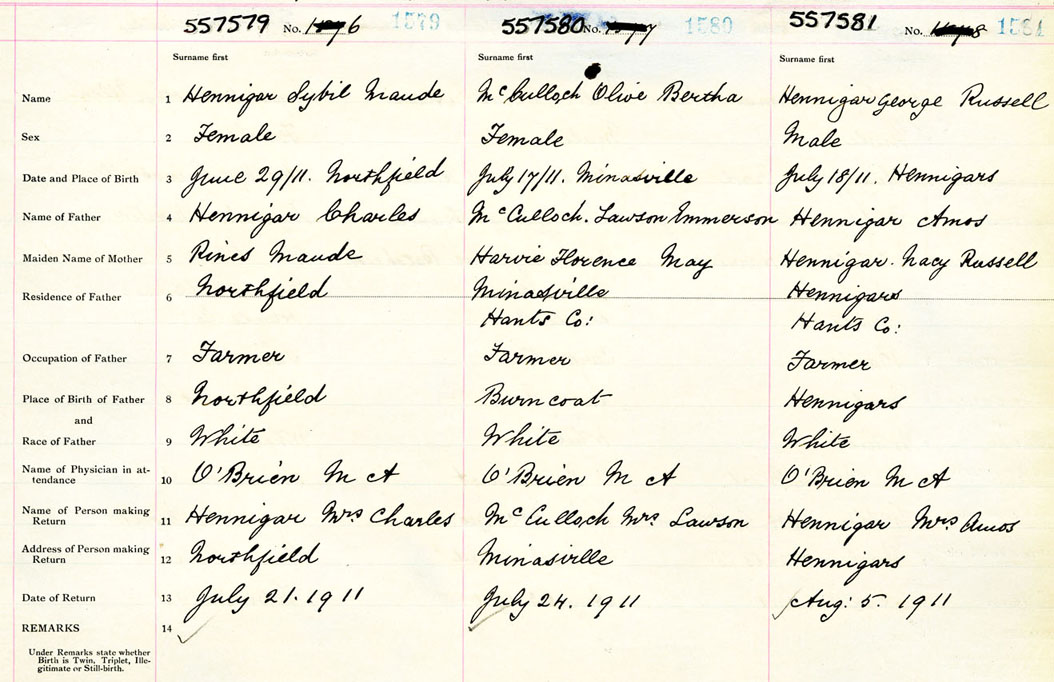 557579 No. 1579 557580 No. 1580 557581 No. 1581
Surname first Surname first Surname first
Name 1 Hennigar Sybil Maude McCulloch Olive Bertha Hennigar George Russell
Sex 2 Female Female Male
Date and Place of Birth 3 June 29/11. Northfield July 17/11. Minasville July 18/11. Hennigars
Name of Father 4 Hennigar Charles McCulloch. Lawson Emmerson Hennigar Amos
Maiden Name of Mother 5 Rines Maude Harvie Florence May Hennigar. Nacy Russell
Residence of Father 6 Northfield Minasville Hennigars
Hants Co: Hants Co:
Occupation of Father 7 Farmer Farmer Farmer
Place of Birth of Father 8 Northfield Burncoat Hennigars
and
Race of Father 9 White White White
Name of Physician in at-
tendance 10 O'Brien M A O'Brien M A O'Brien M A
Name of Person making
Return 11 Hennigar Mrs Charles McCulloch Mrs Lawson Hennigar Mrs. Amos
Address of Person making
Return 12 Northfield Minasville Hennigars
Date of Return 13 July 21. 1911 July 24. 1911 Aug: 5. 1911
REMARKS 14
Under Remarks state whether
Birth is Twin, Triplet, Ille-
gitimate or Still-birth.